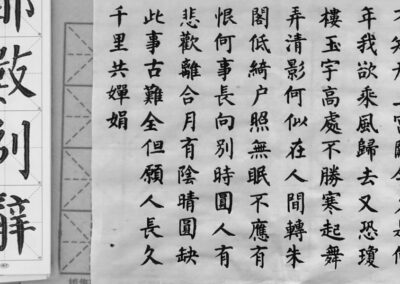 不知天上宮闕今夕是何
年我欲乘風歸去又恐瓊
樓玉宇高處不勝寒起舞
弄清影何似在人間轉朱
閣低綺户照無眠不應有
恨何事長向別時圓人有
悲歡離合月有陰晴圓缺
此事古難全但願人長久
千里共嬋娟
別辭